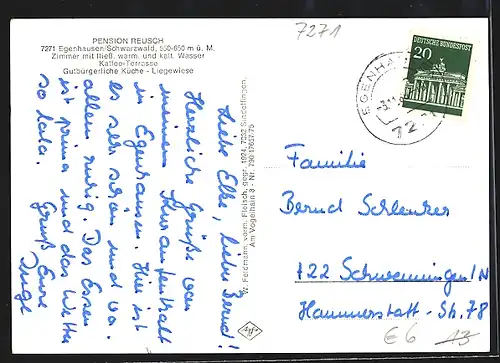 PENSION REUSCH
7271 Egenhausen/Schwarzwald, 550-650 m ü. M.
Zimmer mit fließ. warm. und kalt. Wasser
Kaffee-Terrasse
Gutbürgerliche Küche - Liegewiese
7271
DEUTSCHE BUNDESPOST
20
EGENHAU
727
Liebe Elke, lieber Bernd!
Herzliche Grüße von
meinem Kuraufenthalt
in Egenhausen. Hier ist
es sehr schön und vor
allem ruhig. Das Essen
ist prima und das Wetter
so lala.
Gruß Eure
Inge
W. Feldmann vorm. Fleisch, gepr. 1894, 7032 Sindelfingen,
Am Vogelherd 3 - Nr. 290 17617-75
Familie
Bernd Schlenker
722 Schwenningen/N
Hammerstatt-Str. 78
€6
13